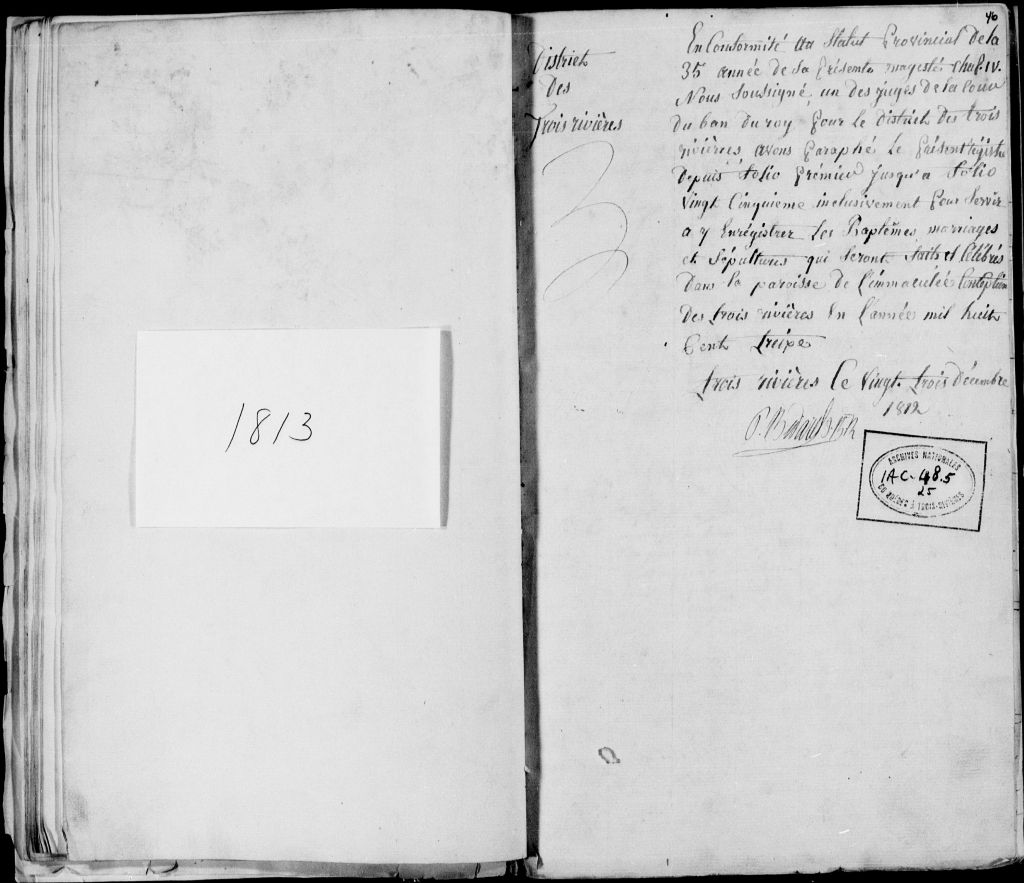 1813
46
District
Des
Trois rivières
En Conformité au Statut Provincial de la
35 année de Sa Présente magesté chap. IV.
Nous Soussigné, un des juges de la Cour
du ban du roy pour Le District des trois
rivières avons Paraphé Le Présent régistre
Depuis folio prémier jusqu'a folio
Vingt Cinquieme inclusivement pour Servir
a y Enrégistrer Les Baptêmes marriages
et Sépultures qui Seront faits et Célébrés
Dans la paroisse de L'immaculée Conception
Des trois rivières En L'année mil huit
Cent treize
trois rivières Ce Vingt trois Décembre
1812
ARCHIVES NATIONALES
1AC-48.5
25
DU QUÉBEC À TROIS-RIVIÈRES